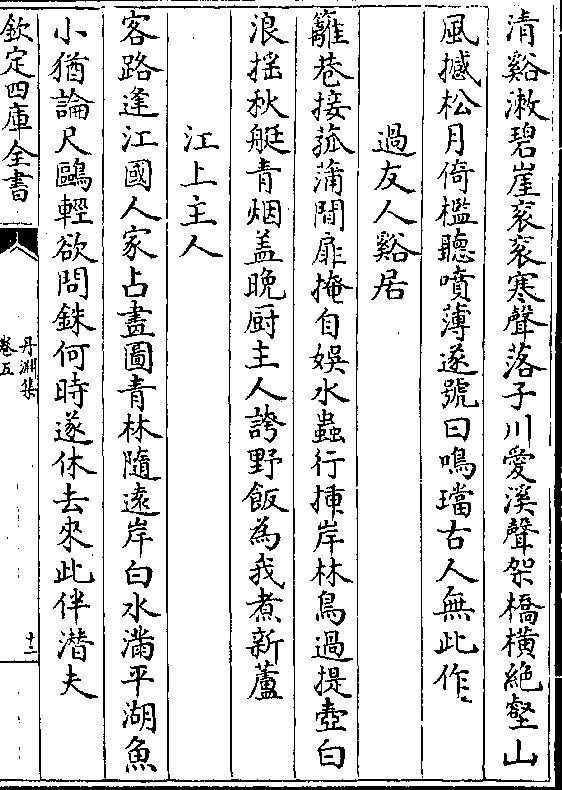 清谿潄碧崖衮衮寒聲落子川愛溪聲架橋橫絶壑山
風撼松月倚檻聽噴薄遂號曰鳴璫古人無此作
過友人谿居
籬巷接菰蒲閒扉掩自娛水蟲行揷岸林鳥過提壺白
浪揺秋艇青烟盖晚厨主人誇野飯為我煮新蘆
江上主人
客路逢江國人家占畫圖青林隨逺岸白水滿平湖魚
小猶論尺鷗輕欲問銖何時遂休去來此伴潜夫
欽定四庫全書
丹淵集
卷五
十二